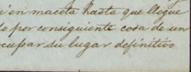 cion maceta hasta que llegue
de por consiguiente cosa de un
ocupar su lugar definitivo